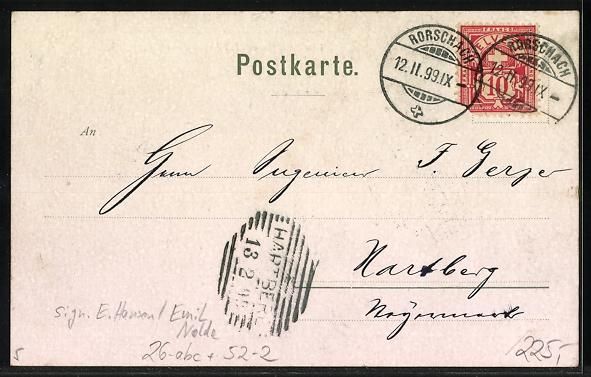 Postkarte.
FRANCO
HELVETIA
10
RORSCHACH
12.II.99.IX-
RORSCHACH
12.II.99.IX-
An
Herrn Ingenieur F.
HARTBERG
13 2 99
Hartberg
Steyermark
sign. E. Hansen / Emil Nolde
26-abc + 52-2
225,-
5